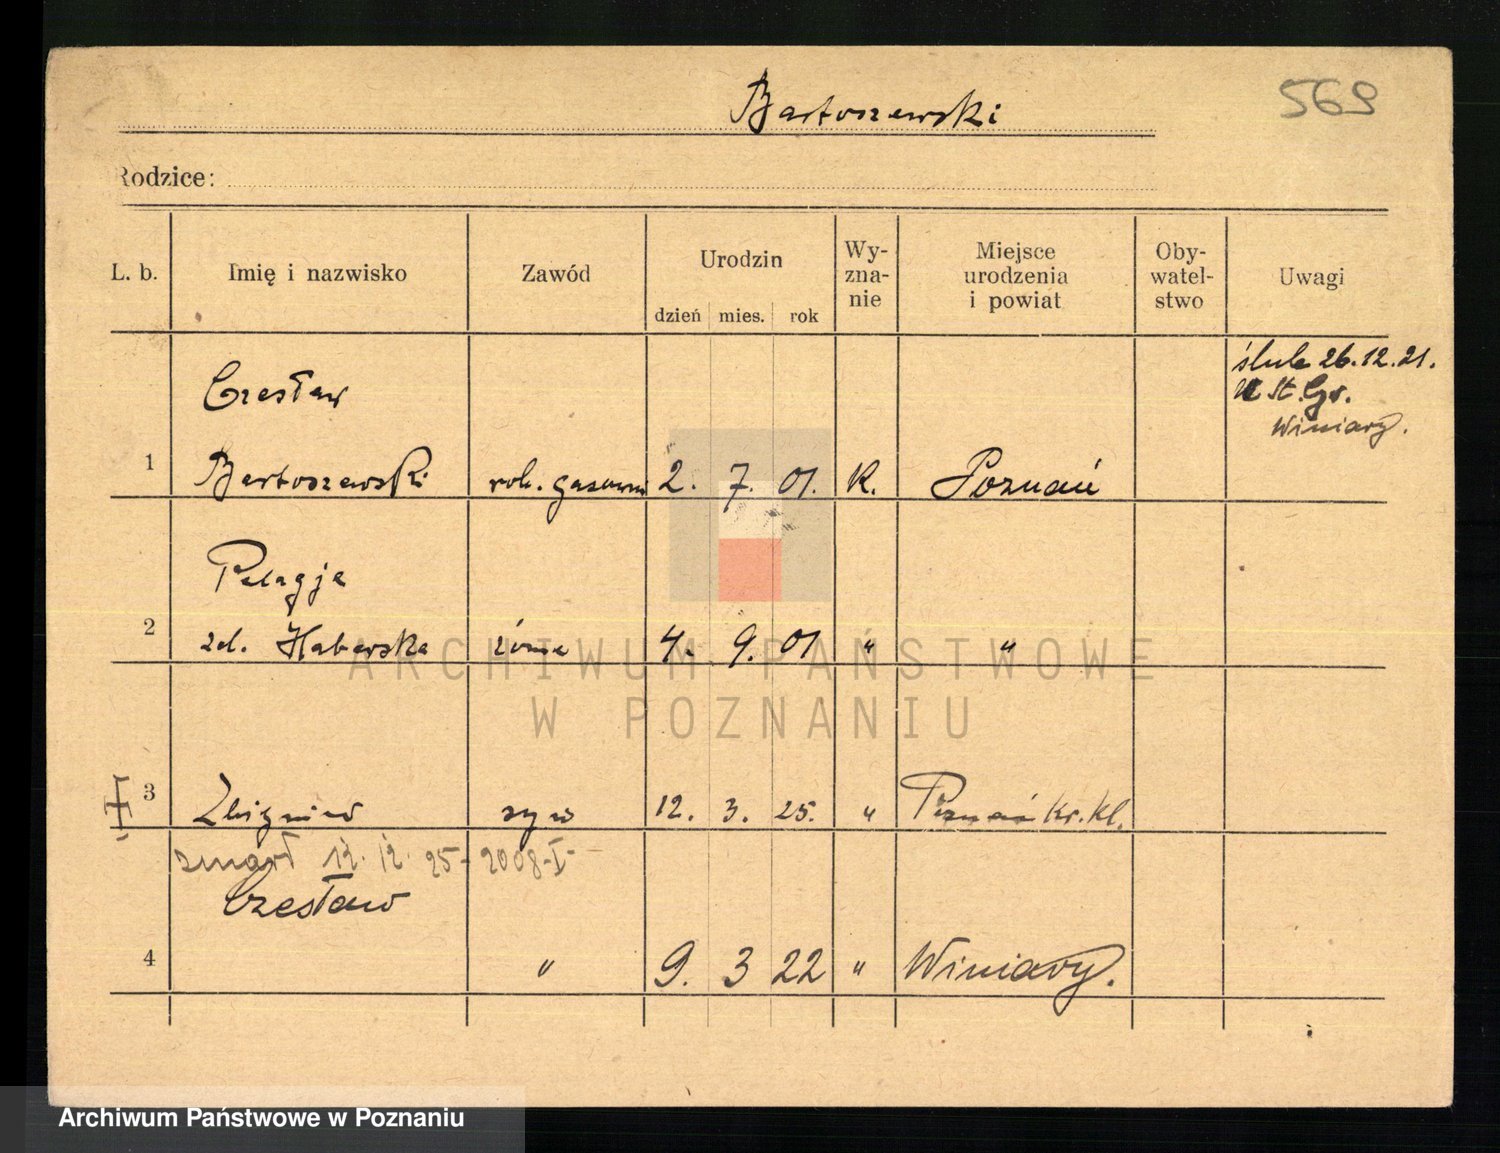 Bartoszewski
569
Rodzice:
L. b. Imię i nazwisko Zawód Urodzin dzień mies. rok Wy-zna-nie Miejsce urodzenia i powiat Oby-watel-stwo Uwagi
ślub 26.12.21.
St.
Winiary.
Czesław
1 Bartoszewski rob. gazowni 2. 7. 01. K. Poznań
Pelagja
2 zd. Haberska żona 4. 9. 01 " "
3 Zbigniew syn 12. 3. 25. " Poznań Kr. Kl.
zmarł 12. 12. 25 - 2008-I-
Czesław
4 " 9. 3 22 " Winiary.
ARCHIWUM PAŃSTWOWE
W POZNANIU
Archiwum Państwowe w Poznaniu